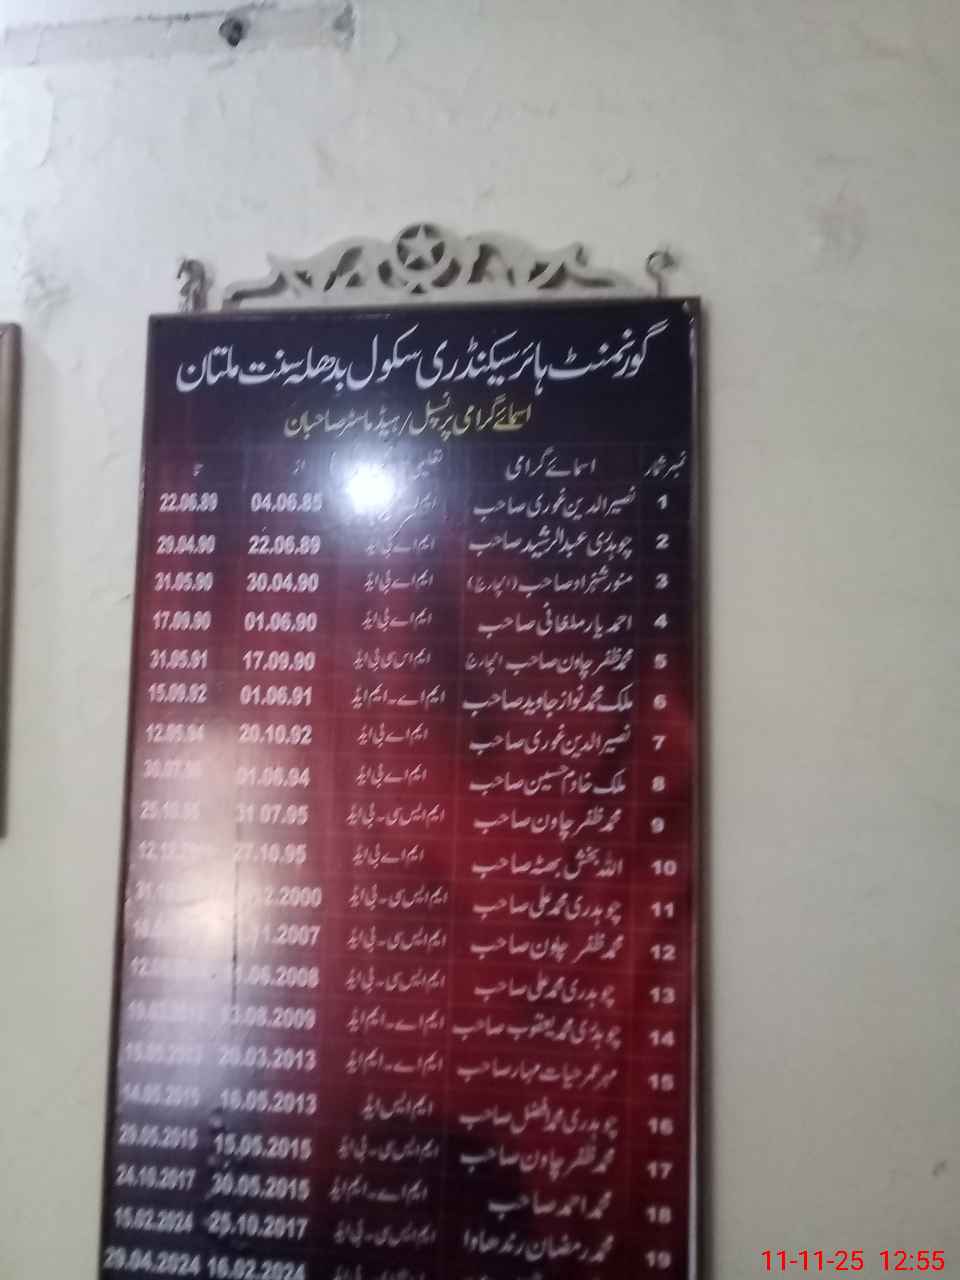 گورنمنٹ ہائر سیکنڈری سکول بدھلہ سنت ملتان
اسمائے گرامی پرنسپل / ہیڈ ماسٹر صاحبان
نمبر شمار اسمائے گرامی از تا
1 نصیر الدین غوری صاحب 04.06.85 22.06.89
2 چوہدری عبدالرشید صاحب ایم اے بی ایڈ 22.06.89 29.04.90
3 منور شہزاد صاحب (انچارج) ایم اے بی ایڈ 30.04.90 31.05.90
4 احمد یار ملغانی صاحب ایم اے بی ایڈ 01.06.90 17.09.90
5 محمد ظفر چاون صاحب انچارج ایم اس سی بی ایڈ 17.09.90 31.05.91
6 ملک محمد نواز جاوید صاحب ایم اے ۔ ایم ایڈ 01.06.91 15.09.92
7 نصیر الدین غوری صاحب ایم اے بی ایڈ 20.10.92
8 ملک خادم حسین صاحب ایم اے بی ایڈ 01.06.94
9 محمد ظفر چاون صاحب ایم ایس سی ۔ بی ایڈ 31 07.95
10 اللہ بخش بھٹہ صاحب ایم اے بی ایڈ 27.10.95
11 چوہدری محمد علی صاحب ایم ایس سی ۔ بی ایڈ
12 محمد ظفر چاون صاحب ایم ایس سی ۔ بی ایڈ
13 چوہدری محمد علی صاحب ایم ایس سی ۔ بی ایڈ
14 چوہدری محمد یعقوب صاحب ایم اے ۔ ایم ایڈ 13.08.2009
15 مہر عمر حیات مہار صاحب ایم اے ۔ ایم ایڈ 20.03.2013
16 چوہدری محمد افضل صاحب ایم ایس ایڈ 16.05.2013 14.05.2015
17 محمد ظفر چاون صاحب ایم ایس سی ۔ بی ایڈ 15.05.2015 29.05.2015
18 محمد احمد صاحب ایم اے ۔ ایم ایڈ 30.05.2015 24.10.2017
19 محمد رمضان رندھاوا ایم ایس سی ۔ بی ایڈ 25.10.2017 15.02.2024
16.02.2024 29.04.2024
11-11-25 12:55